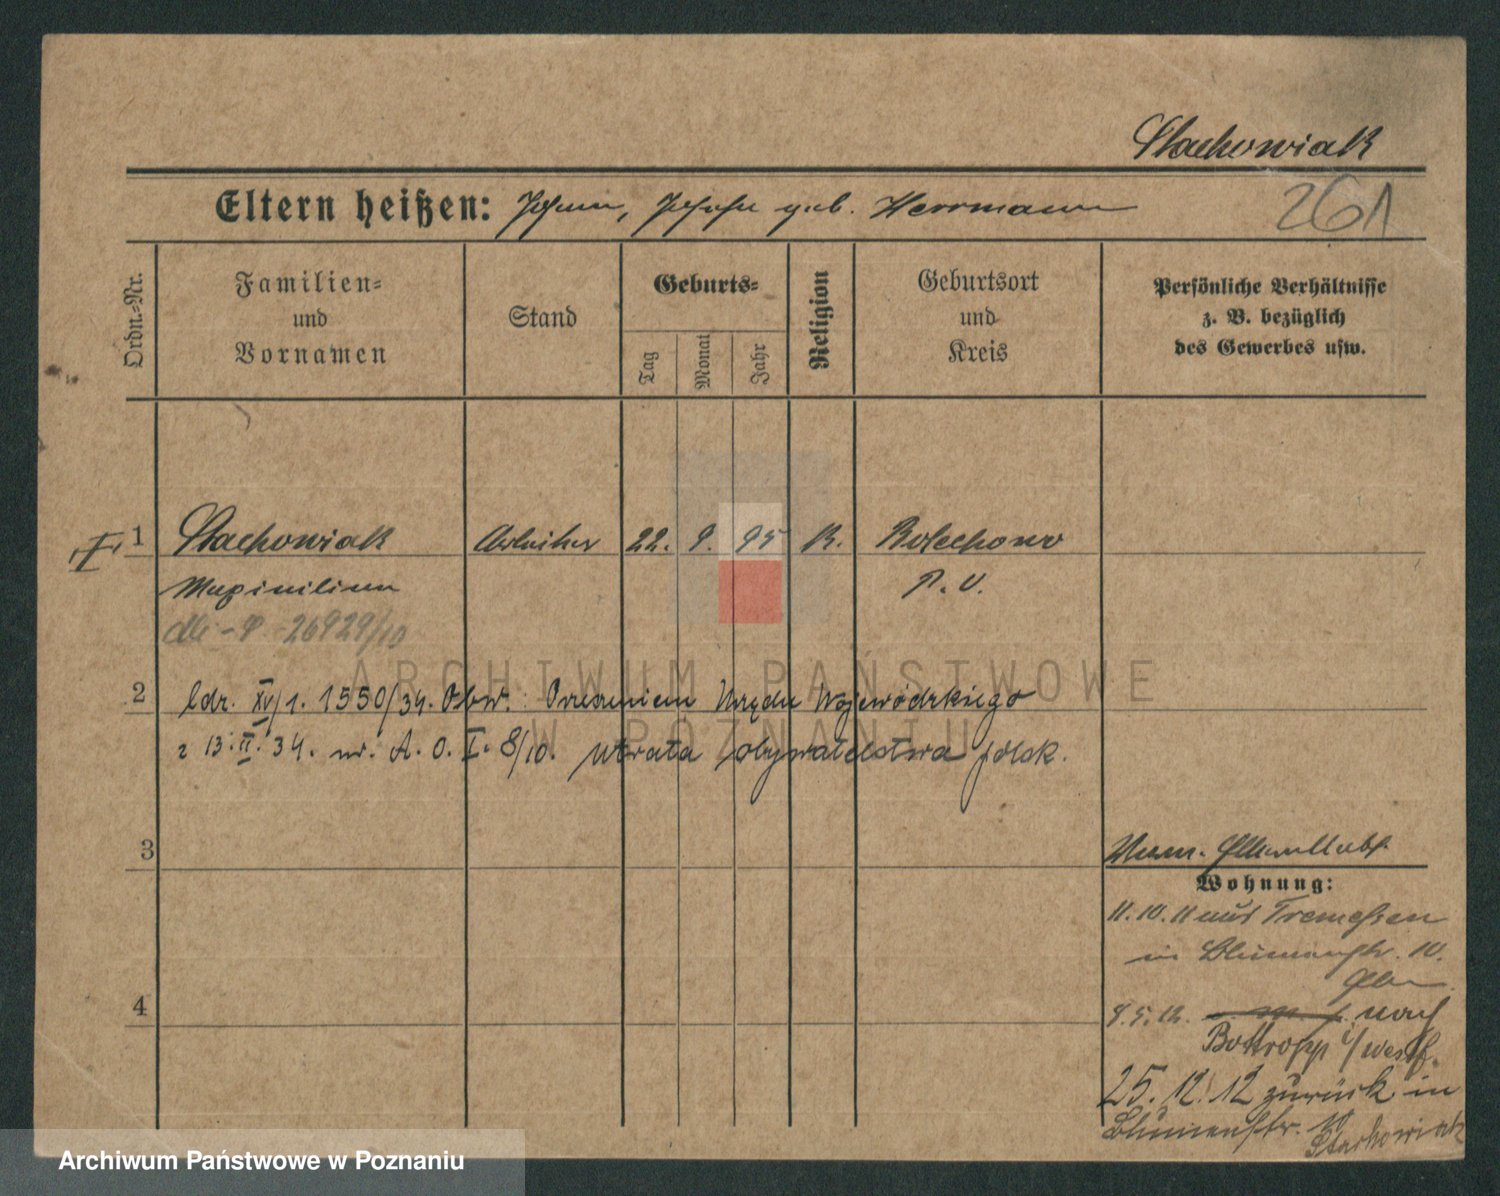 Stachowiak
Eltern heißen: Johann, Josefa geb. Herrmann
261
Ordn.-Nr.
Familien-
und
Vornamen
Stand
Geburts-
Tag
Monat
Jahr
Religion
Geburtsort
und
Kreis
Persönliche Verhältnisse
z. B. bezüglich
des Gewerbes usw.
1 Stachowiak Arbeiter 22. 9. 95 K. Bolechowo
Maximilian P. O.
26929/10
2 XV/1. 1550/34. Obw. Orzeczeniem Urzędu Wojewódzkiego
z 13.II.34. nr. A. O. I. 8/10. utrata obywatelstwa polsk.
3
Wohnung:
11.10.11 aus Tremessen
in Blumenstr. 10.
Eltern
4
9.5.12. nach
Bottropp i/Westf.
25.12.12 zurück in
Blumenstr. 10
Stachowiak
ARCHIWUM PAŃSTWOWE
W POZNANIU
Archiwum Państwowe w Poznaniu